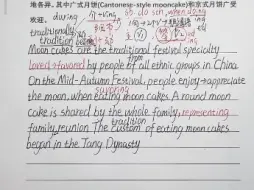 地各异。其中广式月饼(Cantonese-style mooncake)和京式月饼广受
欢迎。 during
traditionally
tradition
Moon cakes are the traditional festival specially
from
loved→favored by people of all ethnic groups in China
On the Mid-Autumn Festival, people enjoy→appreciate
savoring
the moon when eating moon cakes A round moon
cake is shared by the whole family, representing
family reunion. The custom of eating moon cakes
tradition
began in the Tang Dynasty